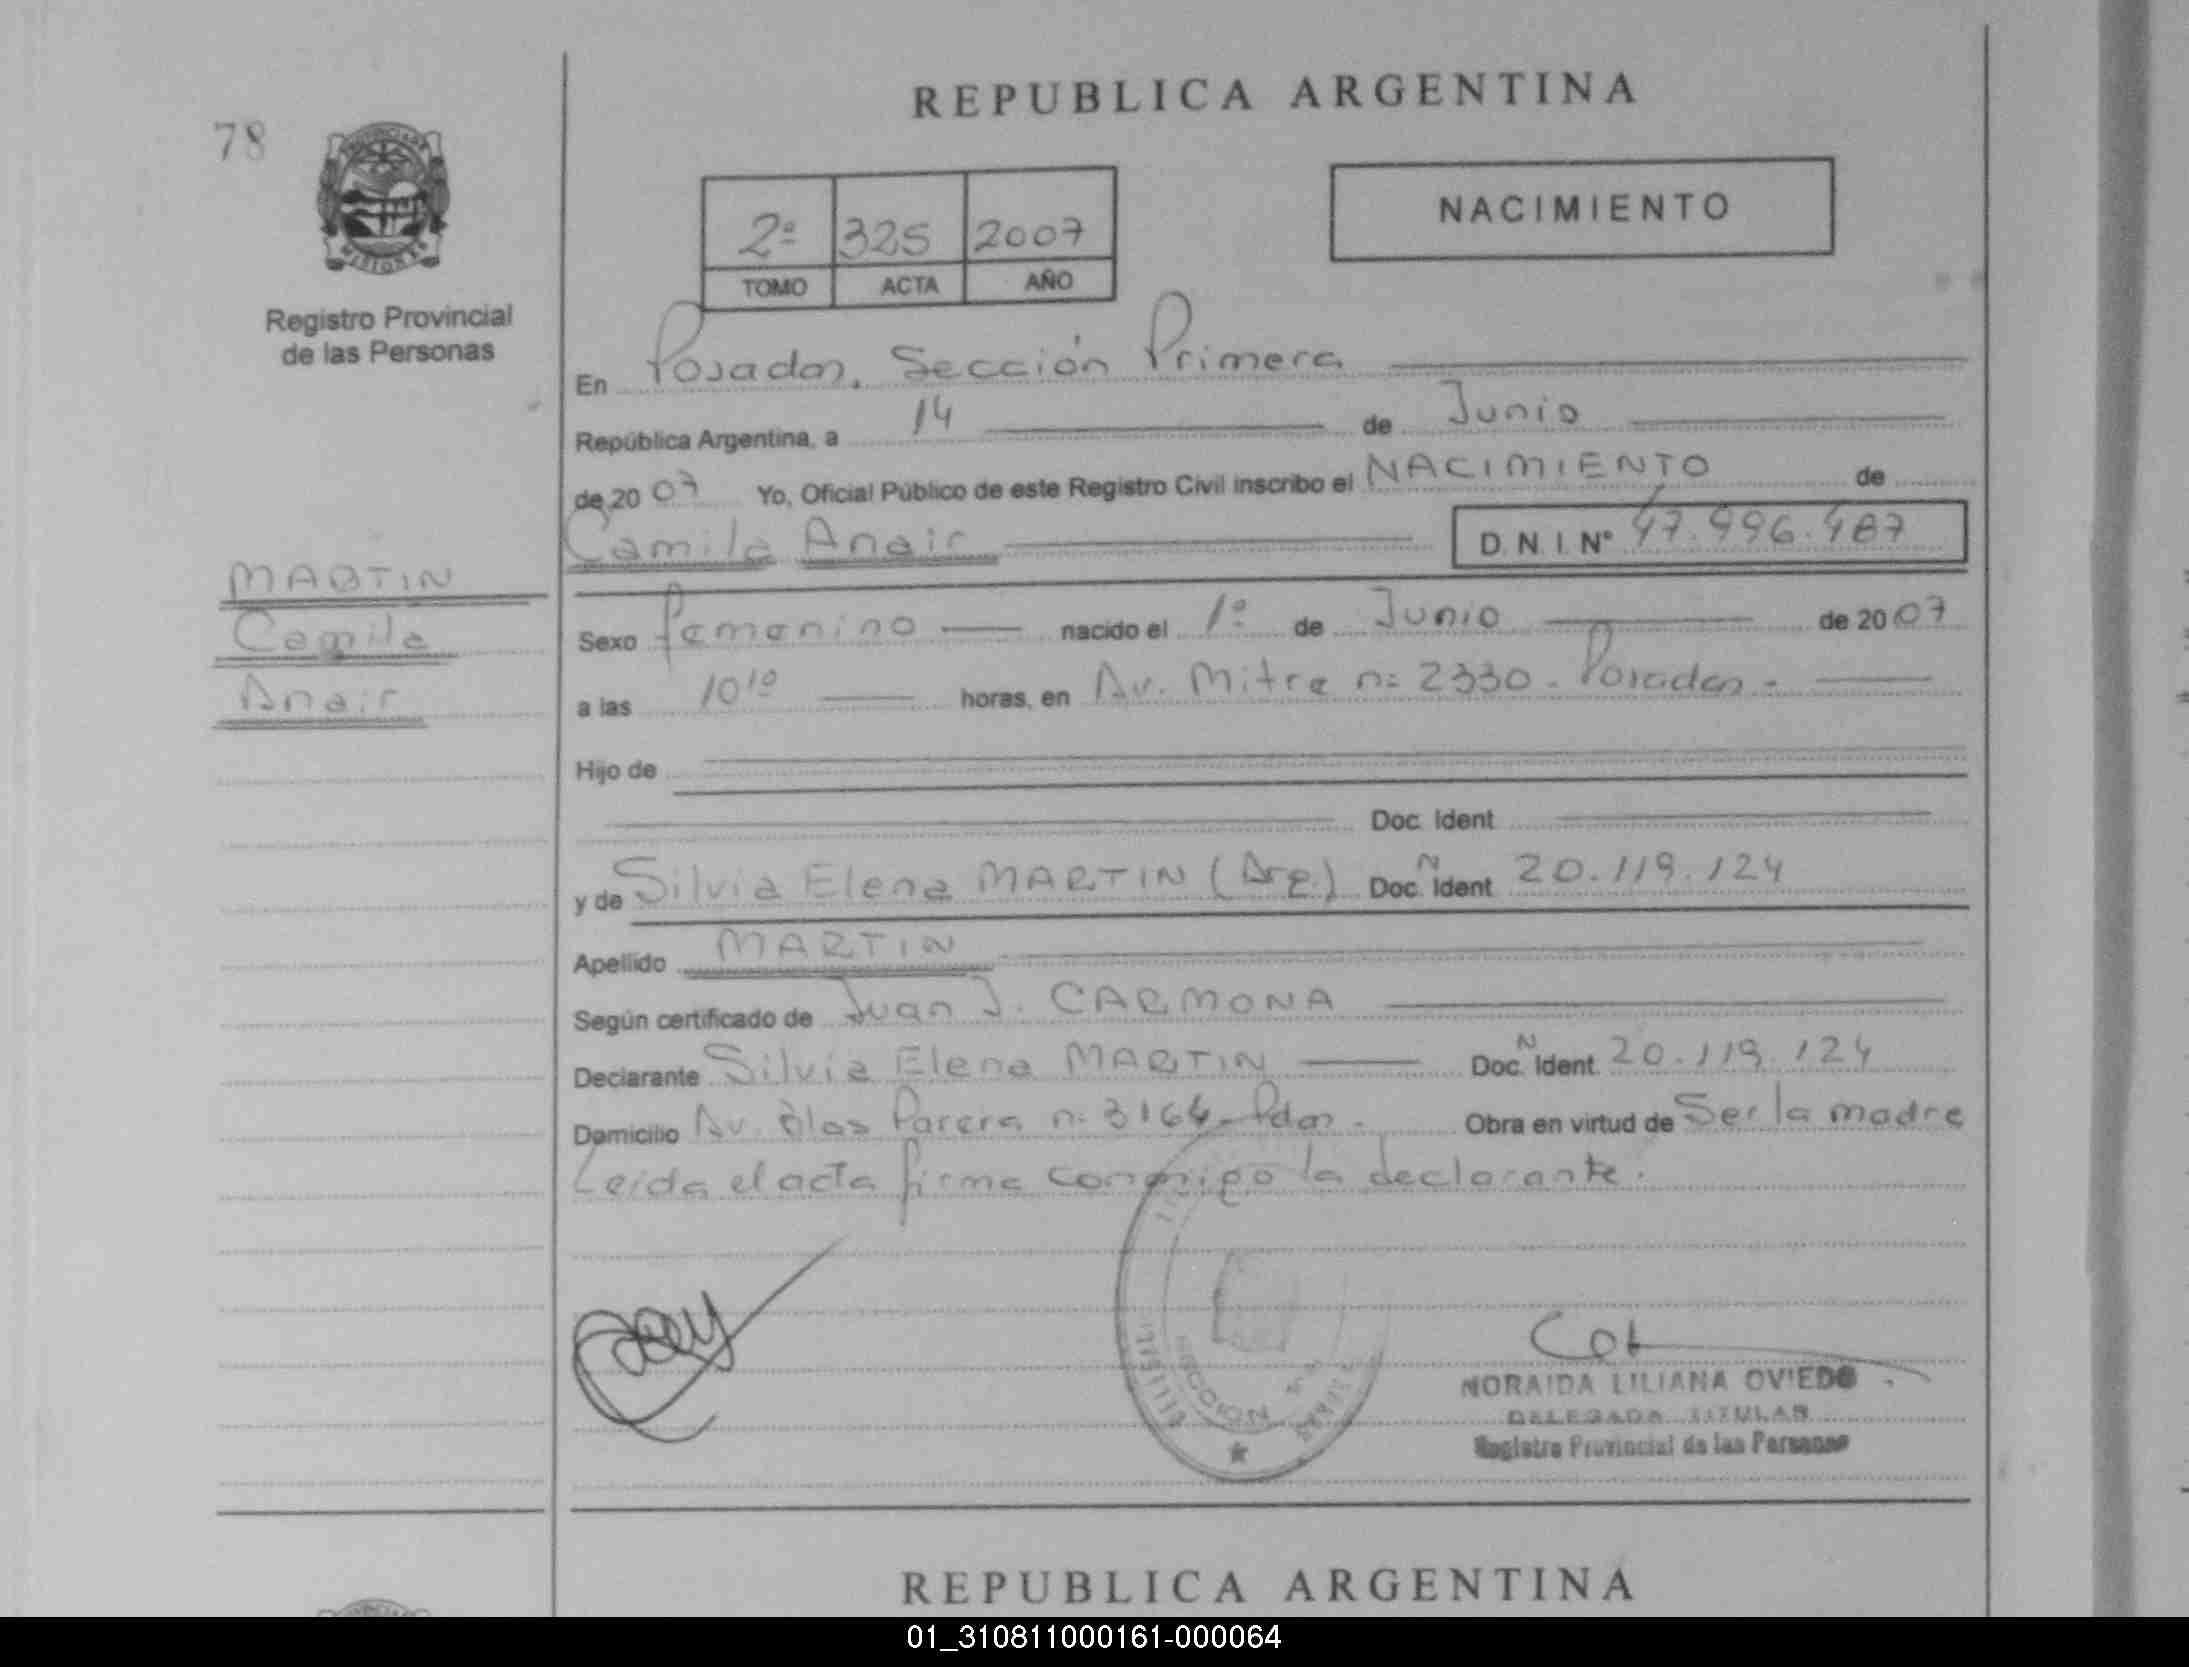 REPUBLICA ARGENTINA
78
2º 325 2007
TOMO ACTA AÑO
NACIMIENTO
PROVINCIA DE MISIONES
Registro Provincial
de las Personas
En Posadas, Sección Primera
República Argentina, a 14 de Junio
de 2007 Yo, Oficial Público de este Registro Civil inscribo el NACIMIENTO de
Camila Anair D. N. I. Nº 47.996.487
MARTIN
Camila
Anair
Sexo femenino nacido el 1º de Junio de 2007
a las 10¹⁰ horas, en Av. Mitre nº 2330 - Posadas -
Hijo de
Doc. Ident
y de Silvia Elena MARTIN (Arg.) Doc. N Ident 20.119.124
Apellido MARTIN
Según certificado de Juan J. CARMONA
Declarante Silvia Elena MARTIN Doc. N Ident. 20.119.124
Domicilio Av. Blas Parera nº 3164 - Pdas - Obra en virtud de Ser la madre
Leida el acta firma conmigo la declarante.
SECCION
NORAIDA LILIANA OVIEDO
DELEGADA TITULAR
Registro Provincial de las Personas
REPUBLICA ARGENTINA
01_310811000161-000064